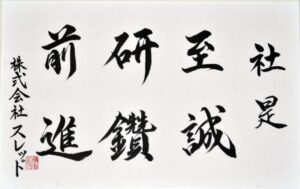 社是
至誠
研鑽
前進
株式会社スレッド